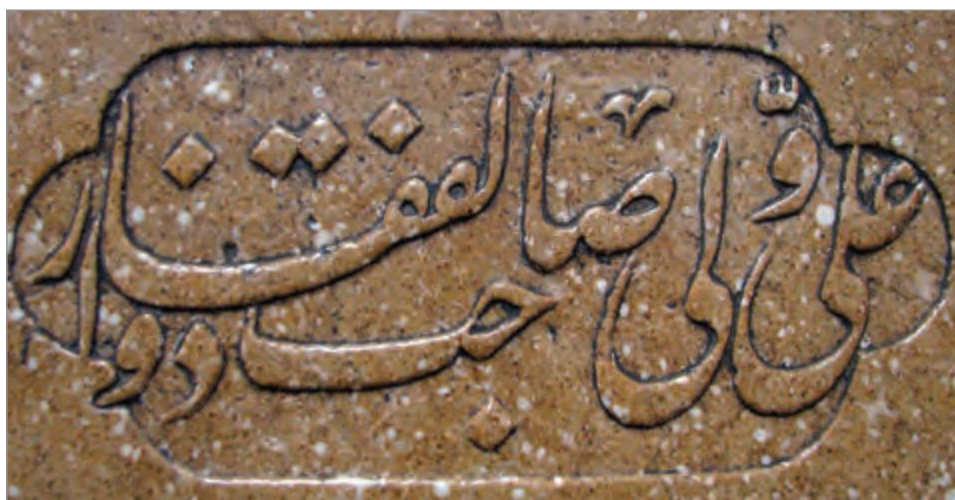 علی ولی صاحب ذوالفقار